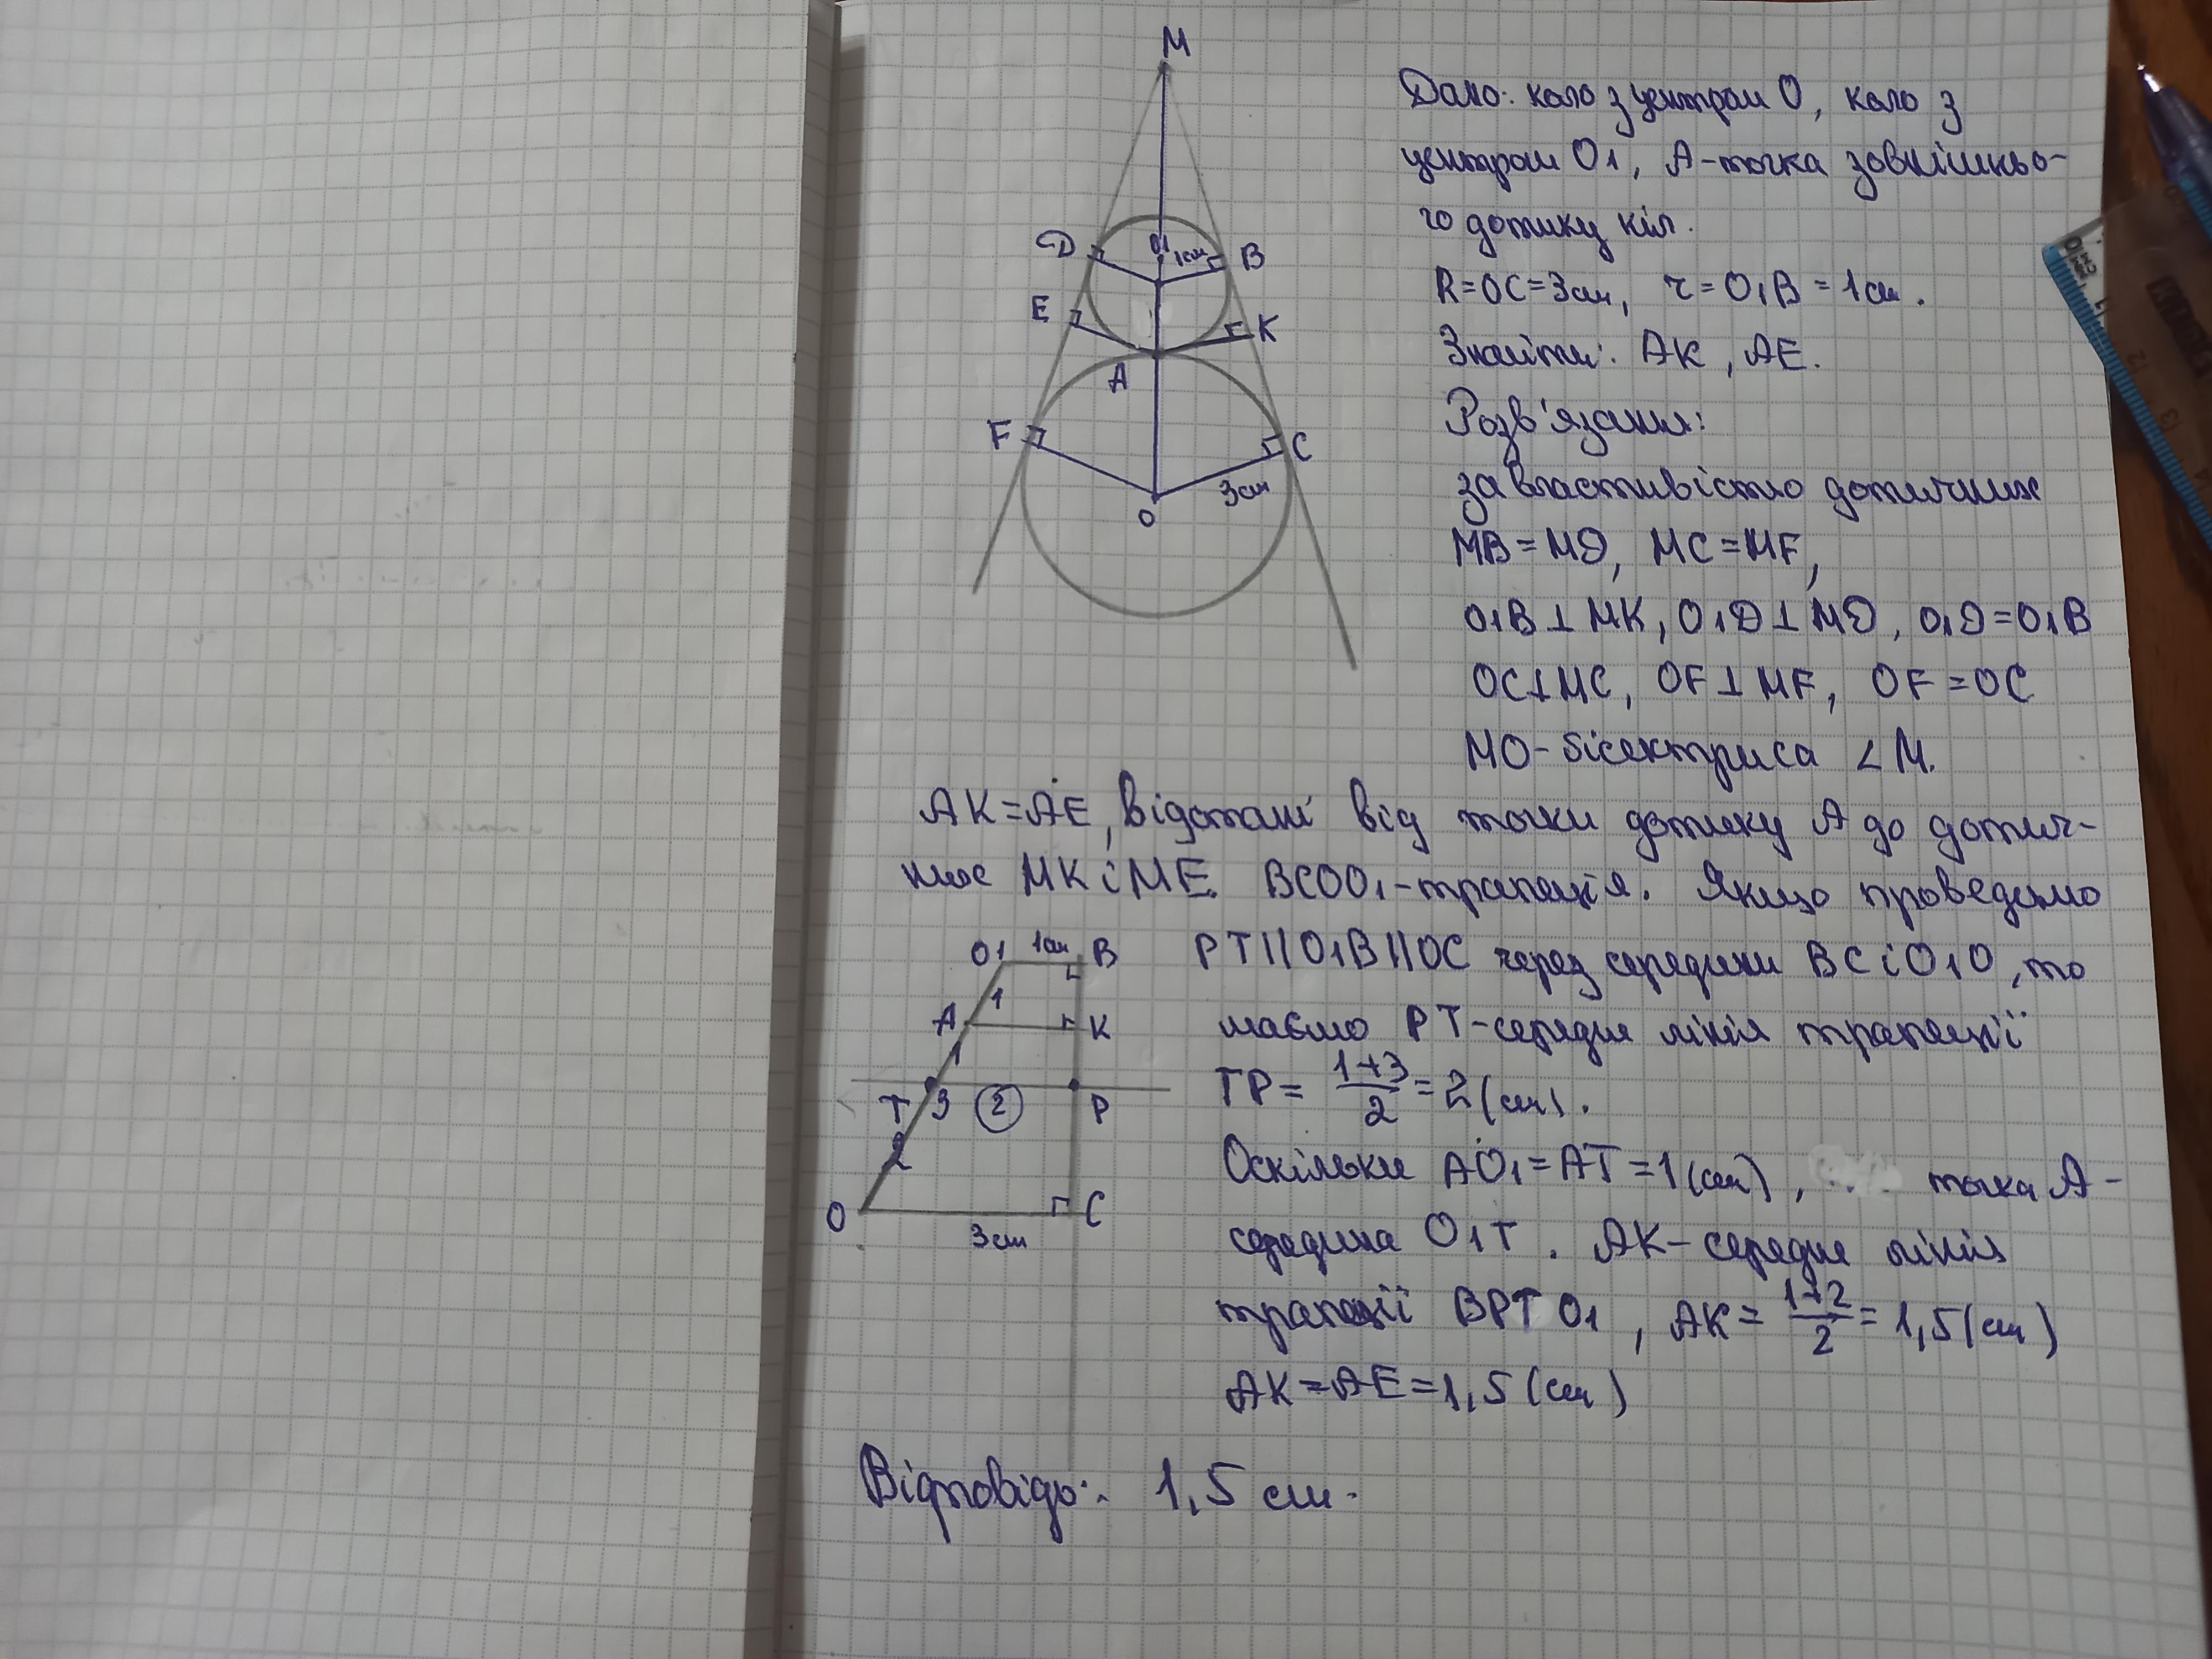 M
D
O1
1см
B
E
K
A
F
C
3см
O
Дано: коло з центром O, коло з
центром O1, A-точка зовнішньо-
го дотику кіл.
R=OC=3см, r=O1B=1см.
Знайти: AK, AE.
Розв'язання:
за властивістю дотичних
MB=MD, MC=MF,
O1B⊥MK, O1D⊥MD, O1D=O1B
OC⊥MC, OF⊥MF, OF=OC
MO-бісектриса ∠M.
AK=AE, відстані від точки дотику A до дотич-
них MK і ME. BCOO1-трапеція. Якщо проведемо
PT||O1B||OC через середини BC і O1O, то
маємо PT-середня лінія трапеції
TP= 1+3/2 =2(см).
Оскільки AO1=AT=1(см), точка A-
середина O1T. AK-середня лінія
трапеції BPTO1, AK= 1+2/2 = 1,5(см)
AK=AE=1,5(см)
O1
1см
B
1
A
K
1
T
3
2
P
2
O
C
3см
Відповідь: 1,5 см.